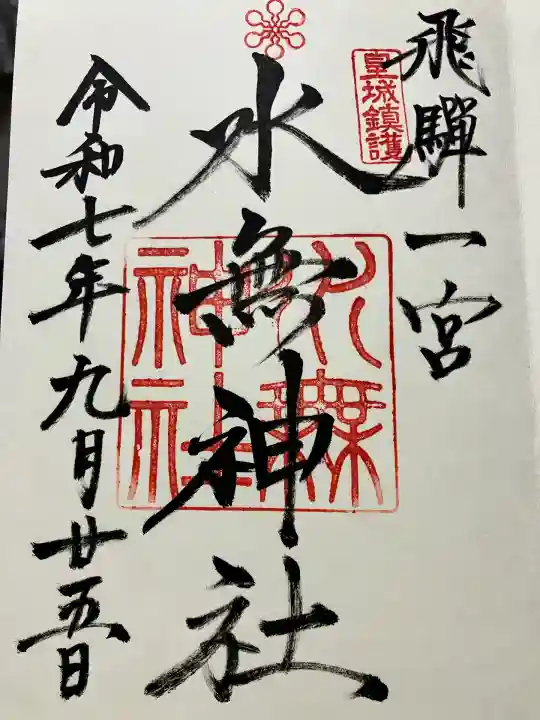 飛驒一宮
皇城鎮護
水無神社
水無神社
令和七年九月廿五日